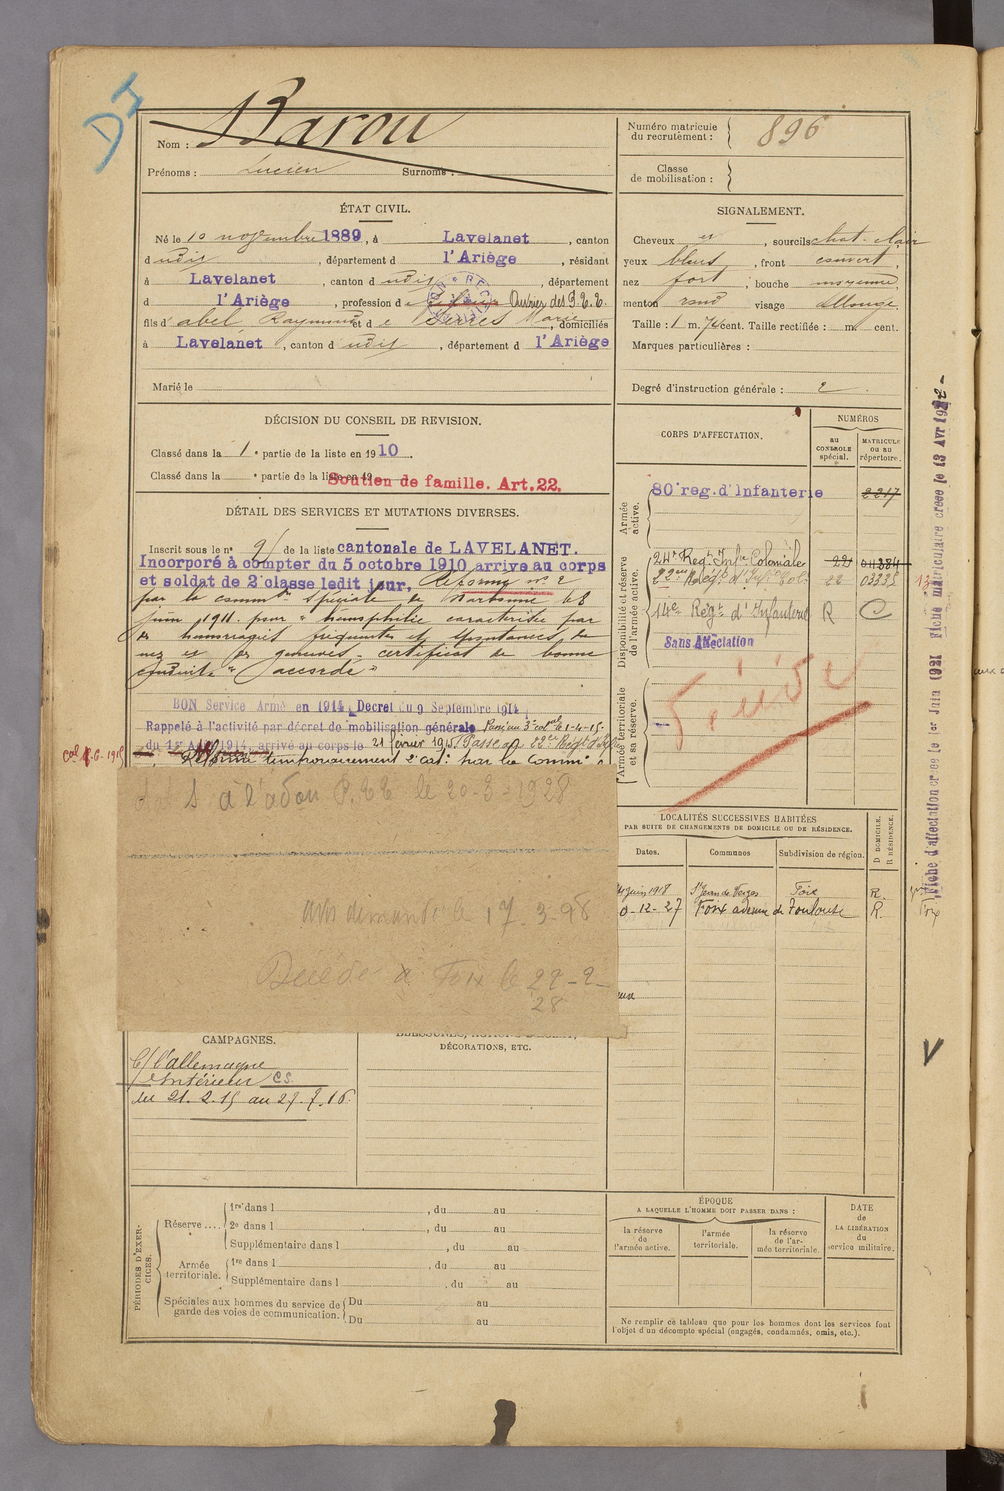 DI
Nom : Barou
Prénoms : Lucien Surnoms :
Numéro matricule du recrutement : 896
Classe de mobilisation :
ÉTAT CIVIL.
Né le 10 novembre 1889, à Lavelanet, canton
d udit, département d l'Ariège, résidant
à Lavelanet, canton d udit, département
d l'Ariège, profession d Ouvrier des P.T.T.
fils d'abel, Raymond et d e Serres Marie, domiciliés
à Lavelanet, canton d udit, département d l'Ariège
Marié le
SIGNALEMENT.
Cheveux et, sourcils chat. clair
yeux bleus, front couvert,
nez fort; bouche moyenne
menton rond visage allongé.
Taille : 1 m. 74 cent. Taille rectifiée : m. cent.
Marques particulières :
Degré d'instruction générale : 2
DÉCISION DU CONSEIL DE REVISION.
Classé dans la 1e partie de la liste en 1910.
Classé dans la e partie de la liste en 19
Soutien de famille. Art. 22.
DÉTAIL DES SERVICES ET MUTATIONS DIVERSES.
Inscrit sous le n° 9 de la liste cantonale de LAVELANET.
Incorporé à compter du 5 octobre 1910 arrive au corps
et soldat de 2e classe ledit jour, Réformé n° 2
par la common spéciale de Narbonne le 8
juin 1911. pour "hémophilie caractérisée par
des hémorragies fréquentes et spontanées du
nez et des gencives" certificat de bonne
conduite "accordé"
BON Service Armé en 1914, Décret du 9 Septembre 1914
Rappelé à l'activité par décret de mobilisation générale Passé au 3e colal le 1-4-15-
du 1er Août 1914, arrivé au corps le 21 février 1915 Passé au 22e Régt d'Inf
Réformé temporairement 2e cat: par la Common
à l'adon P.TT le 20-3-1928
avis demandé le 17-3-28
Décédé à Foix le 22-2-
28
CORPS D'AFFECTATION.
NUMÉROS
au CONTROLE spécial.
MATRICULE ou au répertoire.
Armée active.
80e reg. d'Infanterie 2217
Disponibilité et réserve de l'armée active.
24e Régt Infie Coloniale 22 04384
22eme Régt d'Infie Col. 22 03335
14e Régt d'Infanterie R C
Sans Affectation
Armée territoriale et sa réserve.
Décédé
LOCALITÉS SUCCESSIVES HABITÉES
PAR SUITE DE CHANGEMENTS DE DOMICILE OU DE RÉSIDENCE.
Dates. Communes Subdivision de région. D DOMICILE. R RÉSIDENCE.
juin 1918 St Jean de Verges Foix R.
0-12-27 Foix avenue de Toulouse R.
Fiche d'affectation créée le 1er Juin 1921 Fiche matriculaire créée le 13 Avr 1922-
V
CAMPAGNES.
C/ l'allemagne
Intérieur CS.
du 21.2.15 au 27.7.16.
DÉCORATIONS, ETC.
PÉRIODES D'EXERCICES.
Réserve.... 1re dans l , du au
2e dans l , du au
Supplémentaire dans l , du au
Armée territoriale. 1re dans l , du au
Supplémentaire dans l , du au
Spéciales aux hommes du service de garde des voies de communication. Du au
Du au
ÉPOQUE
A LAQUELLE L'HOMME DOIT PASSER DANS :
la réserve de l'armée active.
l'armée territoriale.
la réserve de l'armée territoriale.
DATE de LA LIBÉRATION du service militaire.
Ne remplir ce tableau que pour les hommes dont les services font
l'objet d'un décompte spécial (engagés, condamnés, omis, etc.).